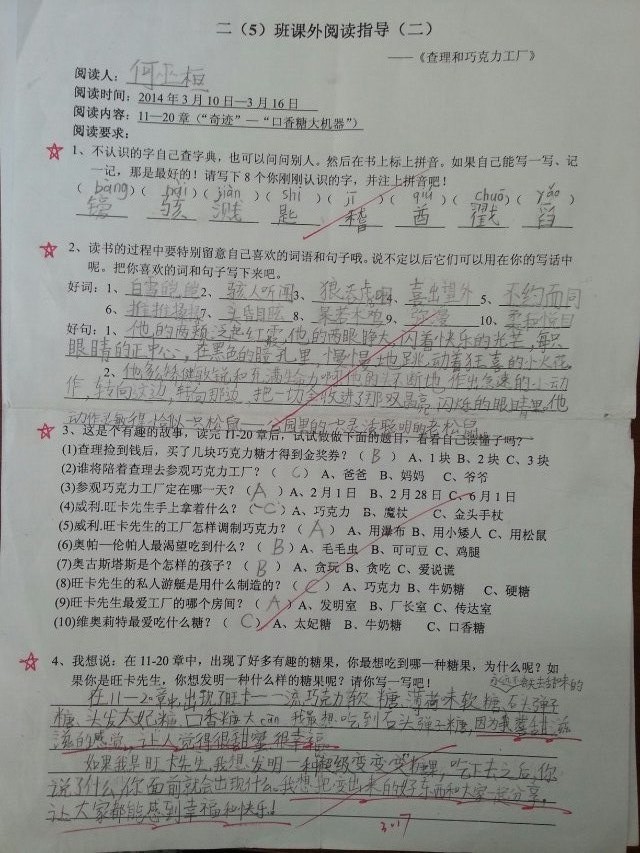 二（5）班课外阅读指导（二）
——《查理和巧克力工厂》
阅读人：何
阅读时间：2014年3月10日—3月16日
阅读内容：11—20章（“奇迹”—“口香糖大机器”）
阅读要求：
1、不认识的字自己查字典，也可以问问别人。然后在书上标上拼音。如果自己能写一写、记
一记，那是最好的！请写下8个你刚刚认识的字，并注上拼音吧！
（bàng）（hài）（jiàn）（shi）（jī）（qiú）（chuō）（yǎo）
镑 骇 溅 匙 稽 酋 戳 舀
2、读书的过程中要特别留意自己喜欢的词语和句子哦。说不定以后它们可以用在你的写话中
呢。把你喜欢的词和句子写下来吧。
好词：1、白雪皑皑 2、骇人听闻 3、狼吞虎咽 4、喜出望外 5、不约而同
6、推推搡搡 7、头昏目眩 8、呆若木鸡 9、 10、柔和悦目
好句：1、他的两颊泛起红霞，他的两眼睁大，闪着快乐的光芒，每只
眼睛的正中心，在黑色的瞳孔里，慢慢地跳动着狂喜的小火花
2、他
作，转向这边，转向那边，把一切全收进了那双晶亮闪烁的眼睛里。他
3、这是个有趣的故事，读完11-20章后，试试做做下面的题目，看看自己读懂了吗？
(1)查理捡到钱后，买了几块巧克力糖才得到金奖券？（B） A、1块 B、2块 C、3块
(2)谁将陪着查理去参观巧克力工厂？（C） A、爸爸 B、妈妈 C、爷爷
(3)参观巧克力工厂定在哪一天？（A）A、2月1日 B、2月28日 C、6月1日
(4)威利.旺卡先生手上拿着什么？（C）A、巧克力 B、魔杖 C、金头手杖
(5)威利.旺卡先生的工厂怎样调制巧克力？（A） A、用瀑布 B、用小矮人 C、用松鼠
(6)奥帕—伦帕人最渴望吃到什么？（B）A、毛毛虫 B、可可豆 C、鸡腿
(7)奥古斯塔斯是个怎样的孩子？（B） A、贪玩 B、贪吃 C、爱说谎
(8)旺卡先生的私人游艇是用什么制造的？（C） A、巧克力 B、牛奶糖 C、硬糖
(9)旺卡先生最爱工厂的哪个房间？（A）A、发明室 B、厂长室 C、传达室
(10)维奥莉特最爱吃什么糖？（C）A、太妃糖 B、牛奶糖 C、口香糖
4、我想说：在11-20章中，出现了好多有趣的糖果，你最想吃到哪一种糖果，为什么呢？如
果你是旺卡先生，你想发明一种什么样的糖果呢？请你写一写吧！
在11—20章中，出现了旺卡一流巧克力软糖、薄荷味软糖、石头弹子
糖、头发太妃糖、口香糖大cān 我最想吃到石头弹子糖，因为
滋的感觉，让人觉得很甜蜜很幸福。
如果我是旺卡先生，我想发明一种超级变变变糖果，吃下去之后，你
说了什么，你面前就会出现什么。我想把变出来的好东西和大家一起分享。
让大家都能感到幸福和快乐！
3.17